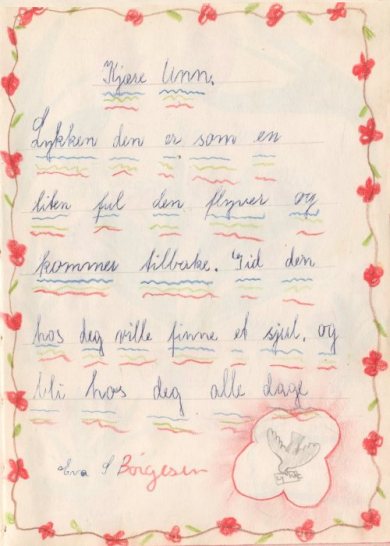 Kjære Unn.
Lykken den er som en
liten ful den flyver og
kommer tilbake. Gid den
hos deg ville finne et sjul, og
bli hos deg alle dage
Eva S Børgesen